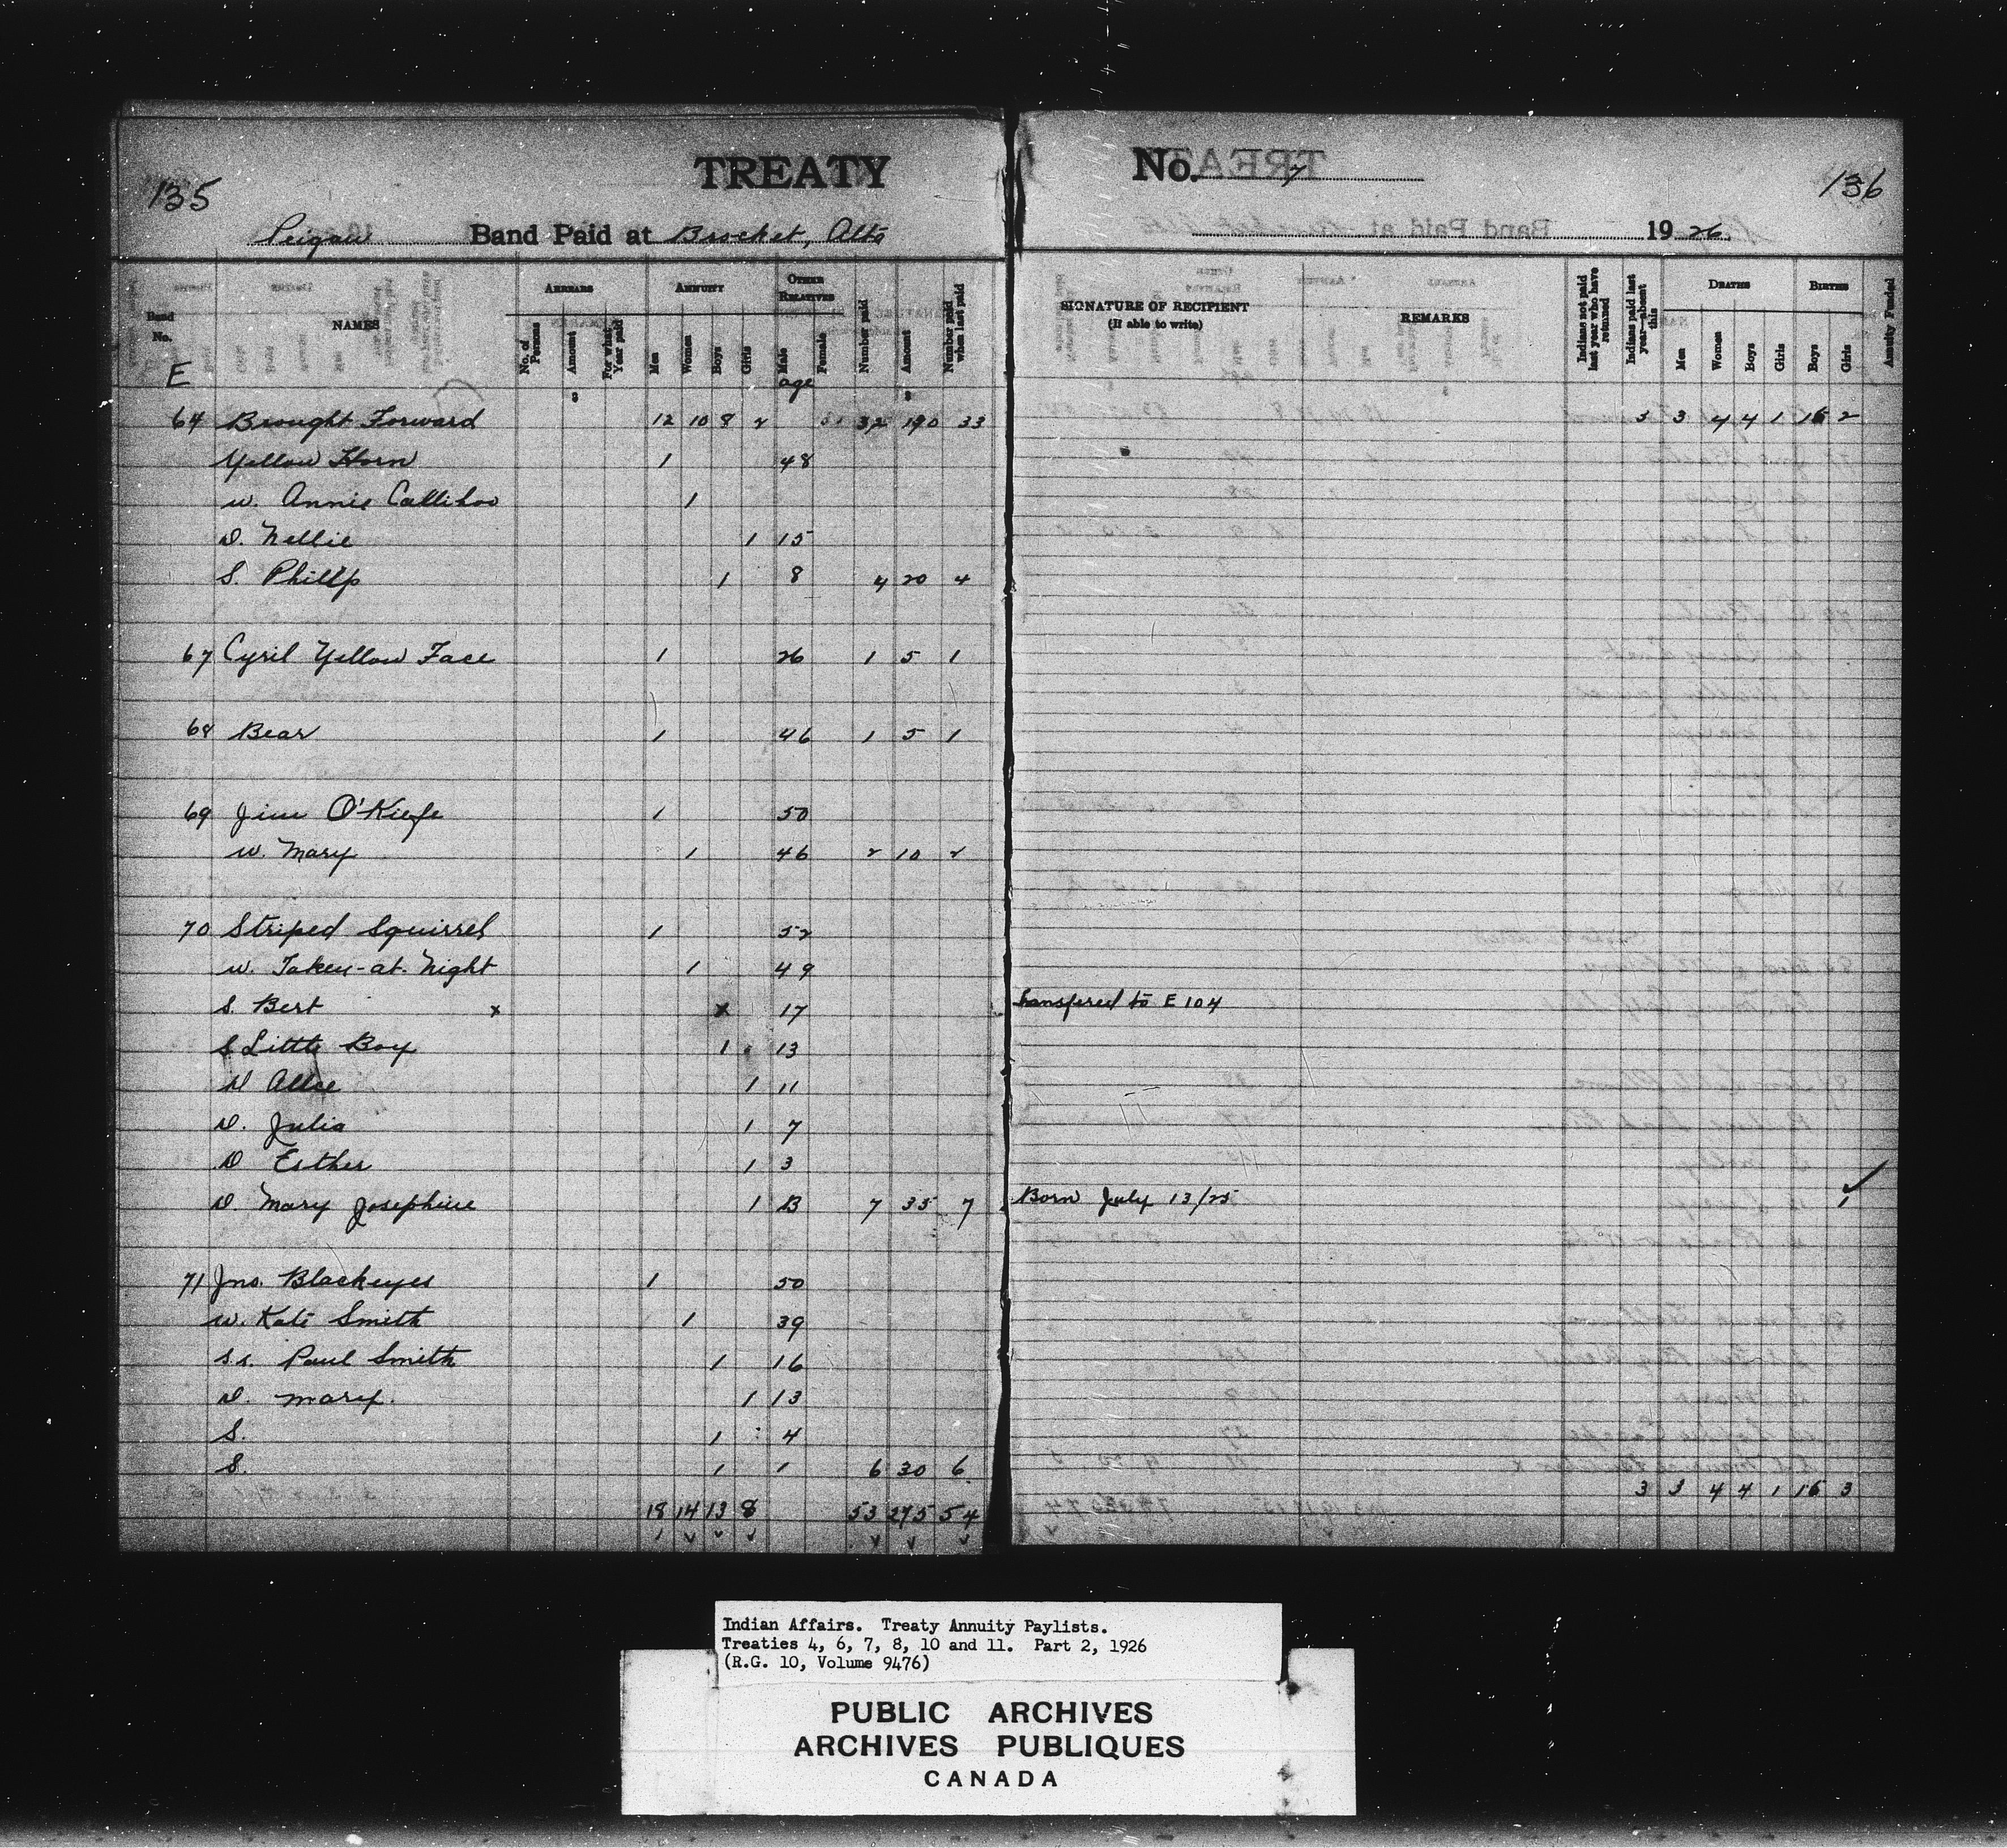 135
TREATY
No. 7
136
Peigan Band Paid at Brocket, Alta 1926
Band No.
NAMES
ARREARS
No. of Persons
Amount
For what Year paid
ANNUITY
Men
Women
Boys
Girls
OTHER RELATIVES
Male
Female
Number paid
Amount
Number paid when last paid
SIGNATURE OF RECIPIENT
(If able to write)
REMARKS
Indians not paid last year who have returned
Indians paid last year—absent this
DEATHS
Men
Women
Boys
Girls
BIRTHS
Boys
Girls
Annuity Funded
E
age
$ $
64 Brought Forward 12 10 8 2 32 190 33 3 3 4 4 1 15 2
Yellow Horn 1 48
w. Annie Callihoo 1
D. Nellie 1 15
S. Phillp 1 8 4 20 4
67 Cyril Yellow Face 1 26 1 5 1
68 Bear 1 46 1 5 1
69 Jim O'Kiefe 1 50
w. Mary 1 46 2 10 2
70 Striped Squirrel 1 52
w. Taken-at-Night 1 49
S. Bert x x 17 transfered to E 104
S Little Boy 1 13
D Allie 1 11
D. Julia 1 7
D Esther 1 3
D. Mary Josephine 1 B 7 35 7 Born July 13/25 1
71 Jno. Blackeyes 1 50
w. Kate Smith 1 39
s.s. Paul Smith 1 16
D. Mary. 1 13
S. 1 4
S. 1 1 6 30 6
18 14 13 8 53 275 54 3 3 4 4 1 15 3
Indian Affairs. Treaty Annuity Paylists.
Treaties 4, 6, 7, 8, 10 and 11. Part 2, 1926
(R.G. 10, Volume 9476)
PUBLIC ARCHIVES
ARCHIVES PUBLIQUES
CANADA